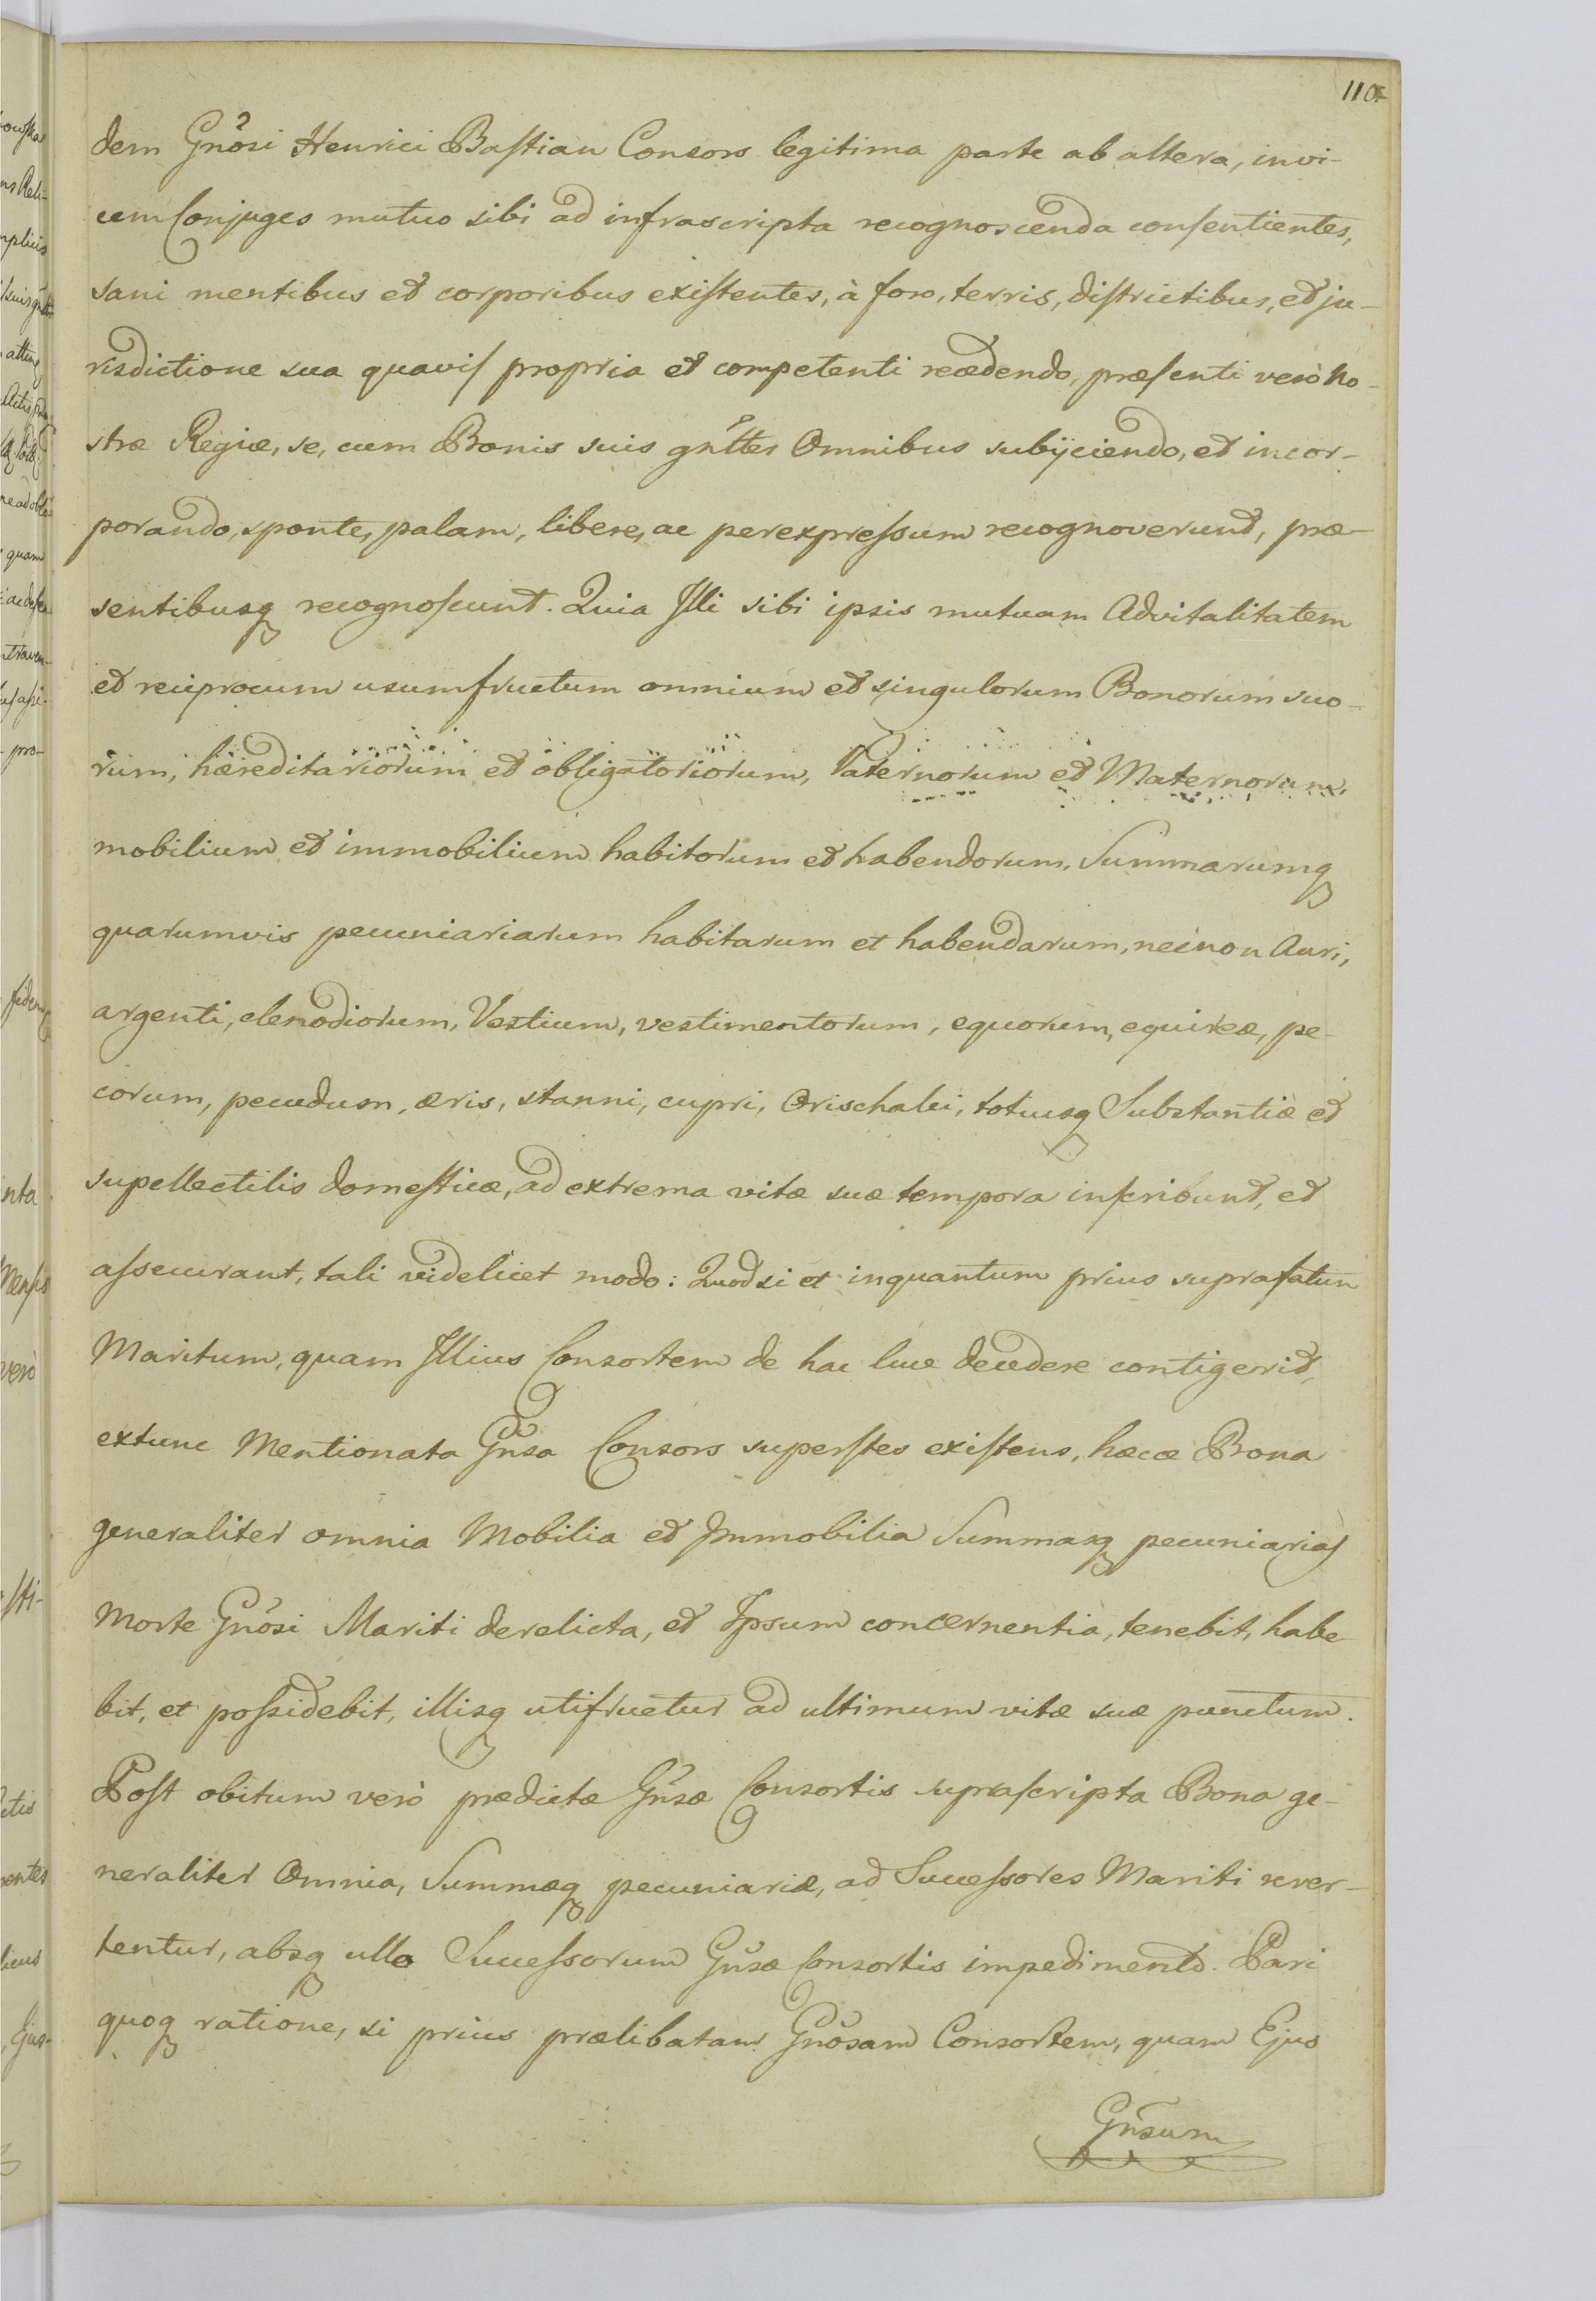 110
dem Gnõsi Henrici Baſtian Consors legitima parte ab altera, invi-
cem Conjuges mutuo sibi ad infrascripta recognoscenda conſentientes,
sani mentibus et corporibus exiſtentes, à foro, terris, diſtrictibus, et ju-
risdictione sua quaviſ propria et competenti recedendo, præſenti verò No-
stræ Regiæ, se, cum Bonis suis gñltes Omnibus subijciendo, et incor-
porando, sponte, palam, libere, ac perexpreſsum recognoverunt, præ-
sentibusq recognoſcunt. Quia Illi sibi ipsis mutuam Advitalitatem
et reciprocum usumfructum omnium et singulorum Bonorum suo-
rum, hæreditariorum et obligatoriorum, Paternorum et Maternorum,
mobilium et immobilium habitorum et habendorum, Summarumq
quarumvis pecuniariarum habitarum et habendarum, necnon Auri,
argenti, clenodiorum, Vestium, vestimentorum, equorum, equireæ, pe-
corum, pecudum, æris, stanni, cupri, Orischalci, totiusq Substantiæ et
supellectilis domeſticæ, ad extrema vitæ suæ tempora inſcribunt, et
aſsecurant, tali videlicet modo: Quod si et inquantum prius suprafatum
Maritum, quam Illius Consortem de hac luce decedere contigerit,
extunc Mentionata Gñsa Consors superſtes exiſtens, hæcce Bona
generaliter omnia Mobilia et Immobilia Summasq pecuniariaſ
Morte Gnõsi Mariti derelicta, et Ipsum concernentia, tenebit, habe
bit, et poſsidebit, illisq utifruetur ad ultimum vitæ suæ punctum.
Poſt obitum verò prædictæ Gñsæ Consortis supraſcripta Bona ge-
neraliter Omnia, Summæq pecuniariæ, ad Succeſsores Mariti rever-
tentur, absq ullo Succeſsorum Gñsæ Consortis impedimento. Pari
quoq ratione, si prius prælibatam Gnõsam Consortem, quam Ejus
Gñsum